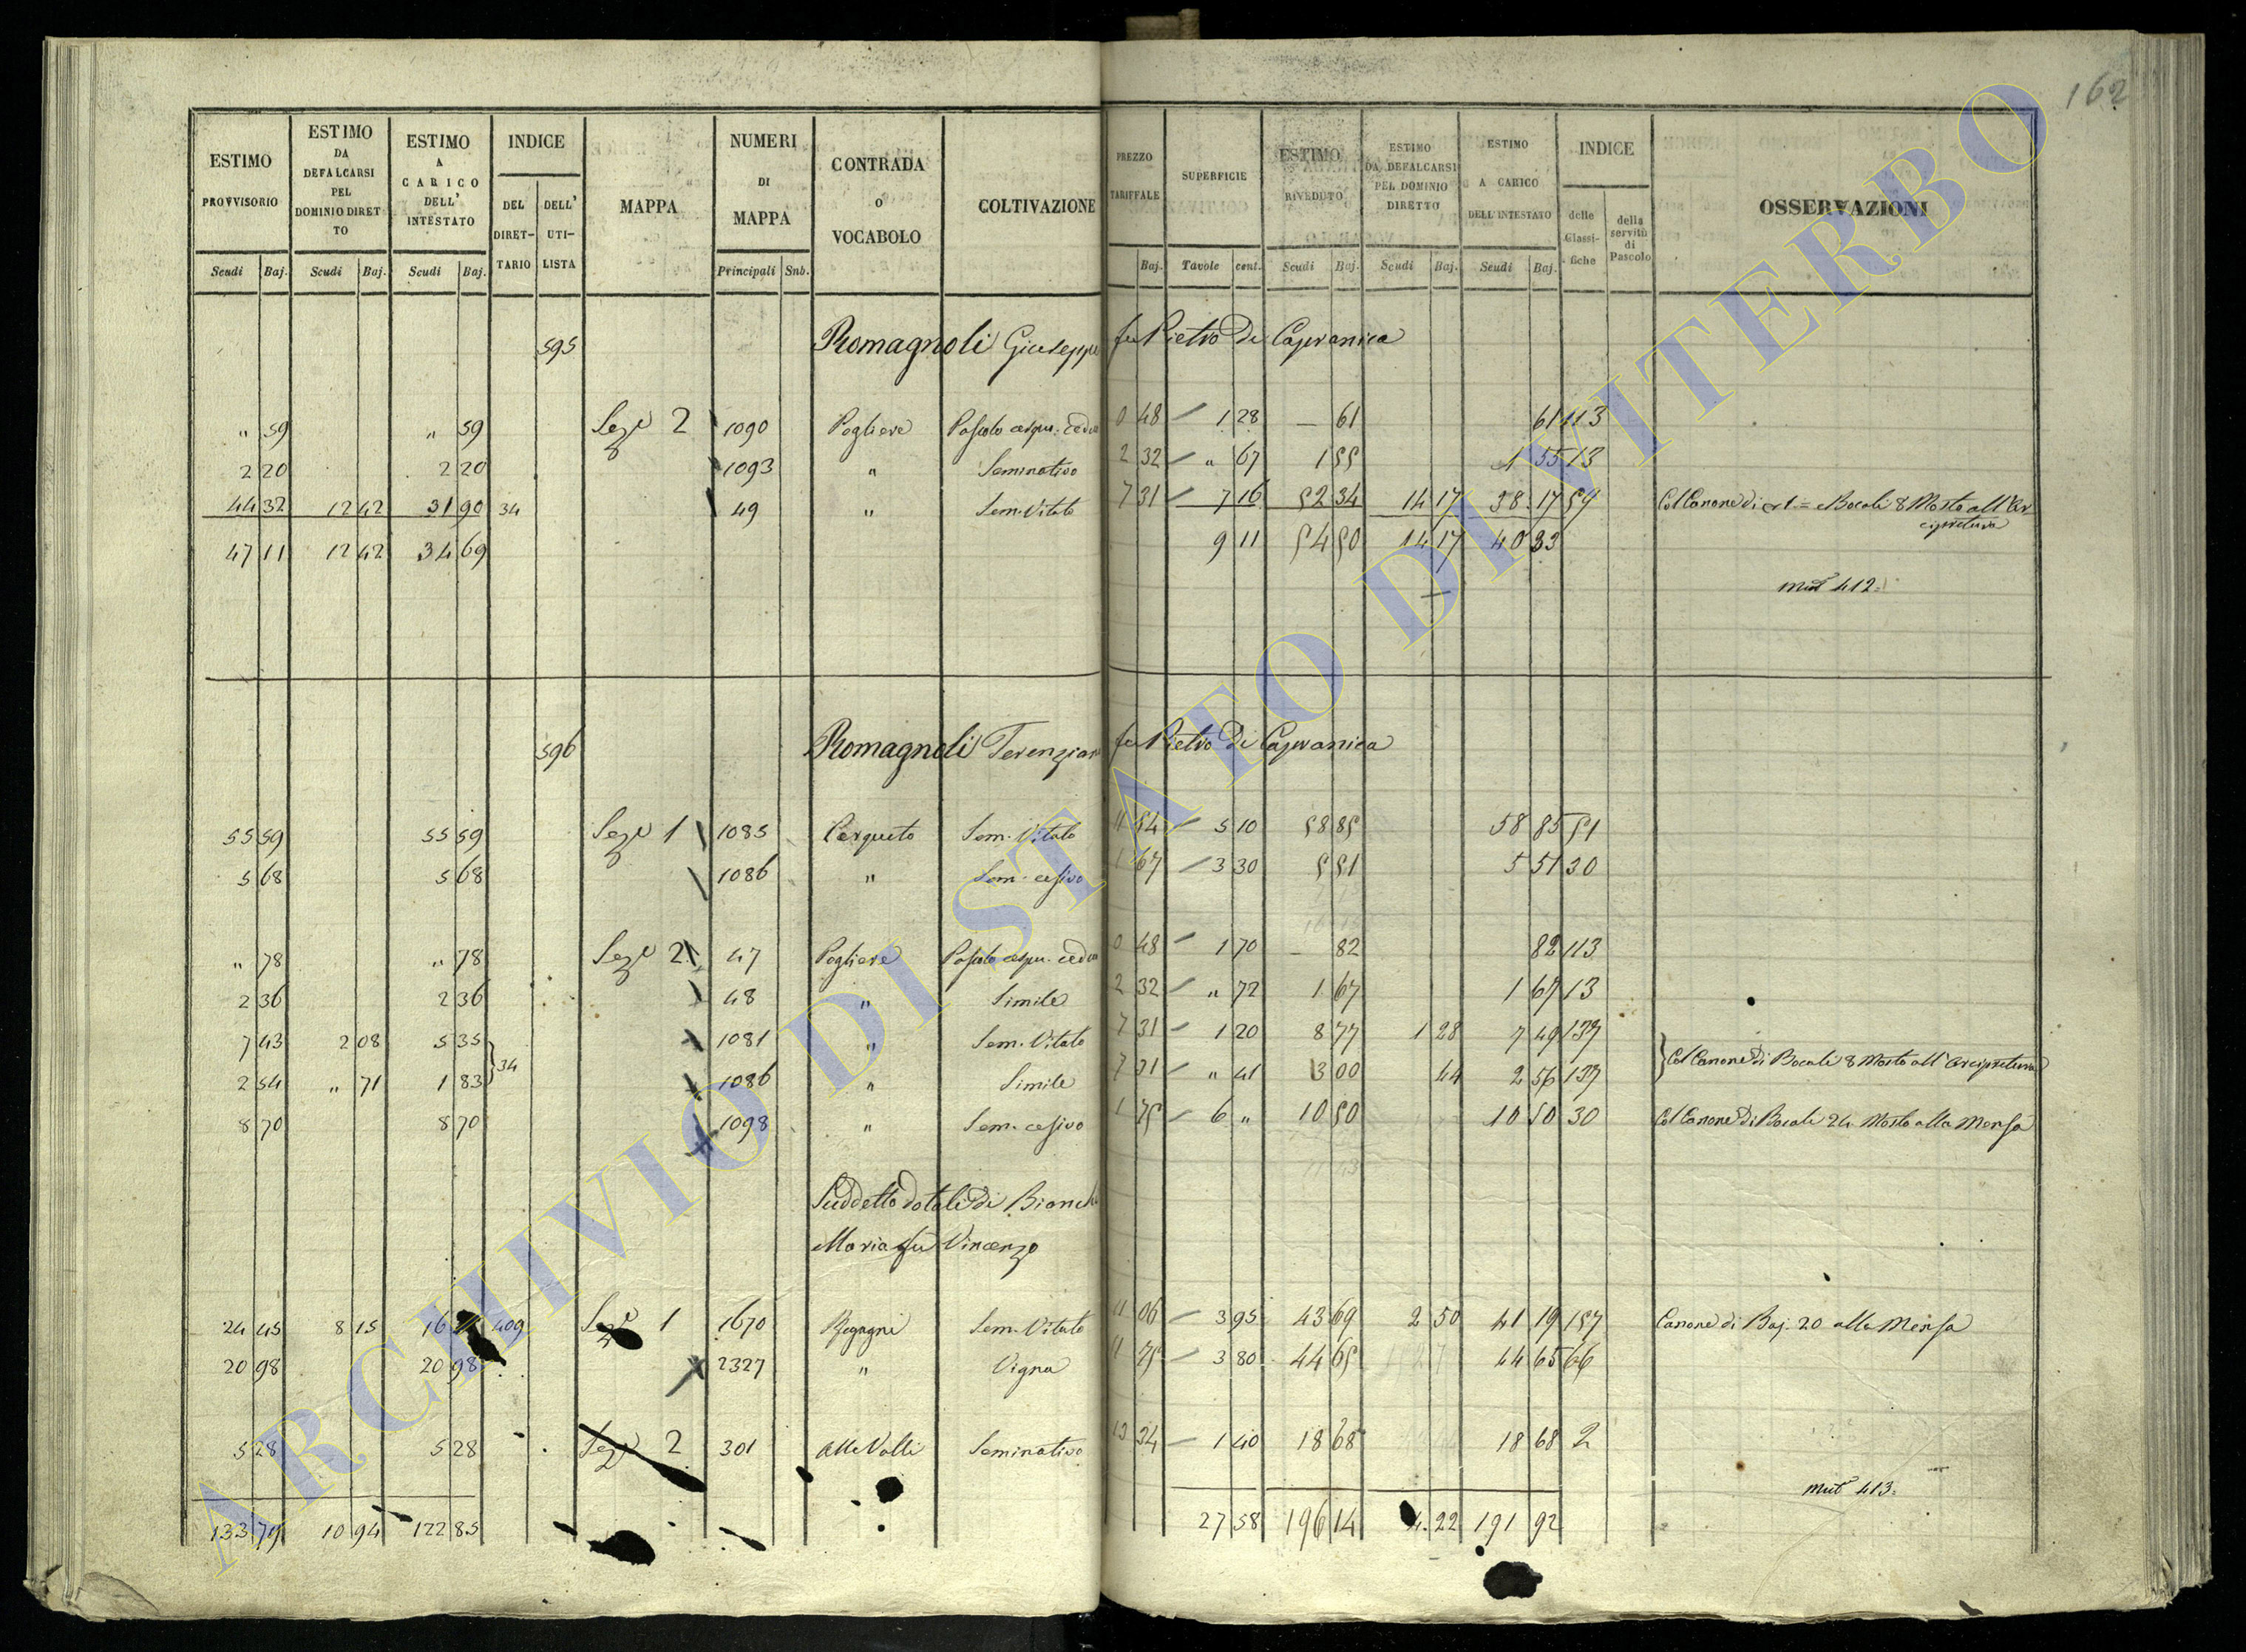 162
ESTIMO PROVVISORIO Scudi Baj.
ESTIMO DA DEFALCARSI PEL DOMINIO DIRETTO Scudi Baj.
ESTIMO A CARICO DELL' INTESTATO Scudi Baj.
INDICE DEL DIRET-TARIO DELL' UTI-LISTA
MAPPA
NUMERI DI MAPPA Principali Sub.
CONTRADA O VOCABOLO
COLTIVAZIONE
PREZZO TARIFFALE Baj.
SUPERFICIE Tavole cent.
ESTIMO RIVEDUTO Scudi Baj.
ESTIMO DA DEFALCARSI PEL DOMINIO DIRETTO Scudi Baj.
ESTIMO A CARICO DELL'INTESTATO Scudi Baj.
INDICE delle Classi-fiche della servitù di Pascolo
OSSERVAZIONI
595 Romagnoli Giuseppe fu Pietro Di Capranica
" 59 " 59 Sezе 2 1090 Pogliere Pascolo cespu. ceduo 0 48 1 28 — 61 61 113
2 20 2 20 1093 " Seminativo 2 32 " 67 1 55 1 55 13
44 32 12 42 31 90 34 49 " Sem. Vitato 7 31 7 16 52 34 14 17 38 17 59 Col Canone di Bocali 8 Mosto all'Arcipretura
47 11 12 42 34 69 9 11 54 50 14 17 40 33
mut 412.
596 Romagnoli Terenziano fu Pietro Di Capranica
55 59 55 59 Seze 1 1085 Cerqueto Sem. Vitato 11 54 5 10 58 85 58 85 51
5 68 5 68 1086 " Sem. cesivo 1 67 3 30 5 51 5 51 30
" 78 " 78 Seze 2 47 Pogliere Pascolo cespu. ceduo 0 48 1 70 — 82 82 113
2 36 2 36 48 " Simile 2 32 " 72 1 67 1 67 13
7 43 2 08 5 35 34 1081 " Sem. Vitato 7 31 1 20 8 77 1 28 7 49 137 Col Canone Di Bocali 8 Mosto all'Arcipretura
2 54 " 71 1 83 1086 " Simile 7 31 " 41 3 00 44 2 56 137
8 70 8 70 1098 " Sem. cesivo 1 75 6 " 10 50 10 50 30 Col Canone Di Bocali 24 Mosto alla Mensa
Suddetto dotali di Bianchi
Maria fu Vincenzo
24 45 8 15 16 409 Seze 1 1670 Sem. Vitato 11 06 3 95 43 69 2 50 41 19 157 Canone di Baj. 20 alla Mensa
20 98 20 98 2327 " Vigna 11 75 3 80 44 65 44 65 66
5 28 5 28 Seze 2 301 Alle Valli Seminativo 13 34 1 40 18 68 18 68 2
mut 413.
133 79 10 94 122 85 27 58 196 14 4 22 191 92
ARCHIVIO DI STATO DI VITERBO